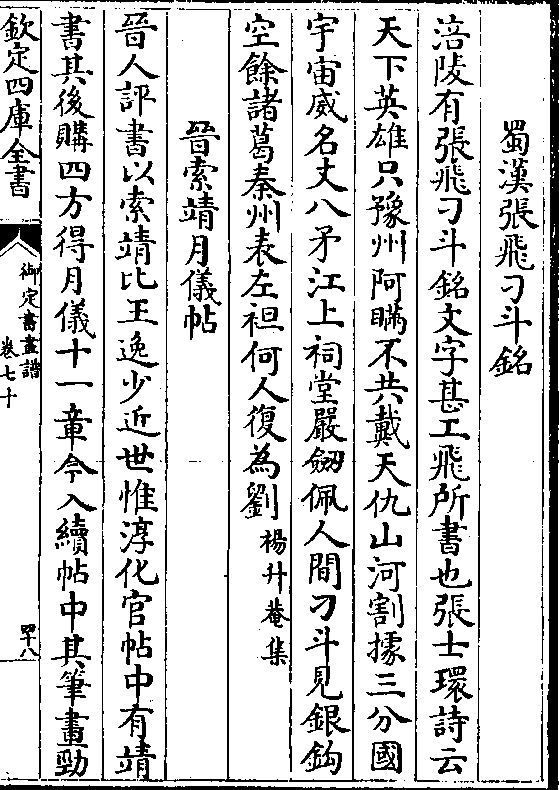 蜀漢張飛刁斗銘
涪陵有張飛刁斗銘文字甚工飛所書也張士環詩云
天下英雄只豫州阿瞞不共戴天仇山河割據三分國
宇宙威名丈八矛江上祠堂嚴劔佩人間刁斗見銀鈎
空餘諸葛秦州表左袒何人復為劉楊升菴集
晉索靖月儀帖
晉人評書以索靖比王逸少近世惟淳化官帖中有靖
書其後購四方得月儀十一章今入續帖中其筆畫勁
欽定四庫全書
御定書畫譜
卷七十
四十八